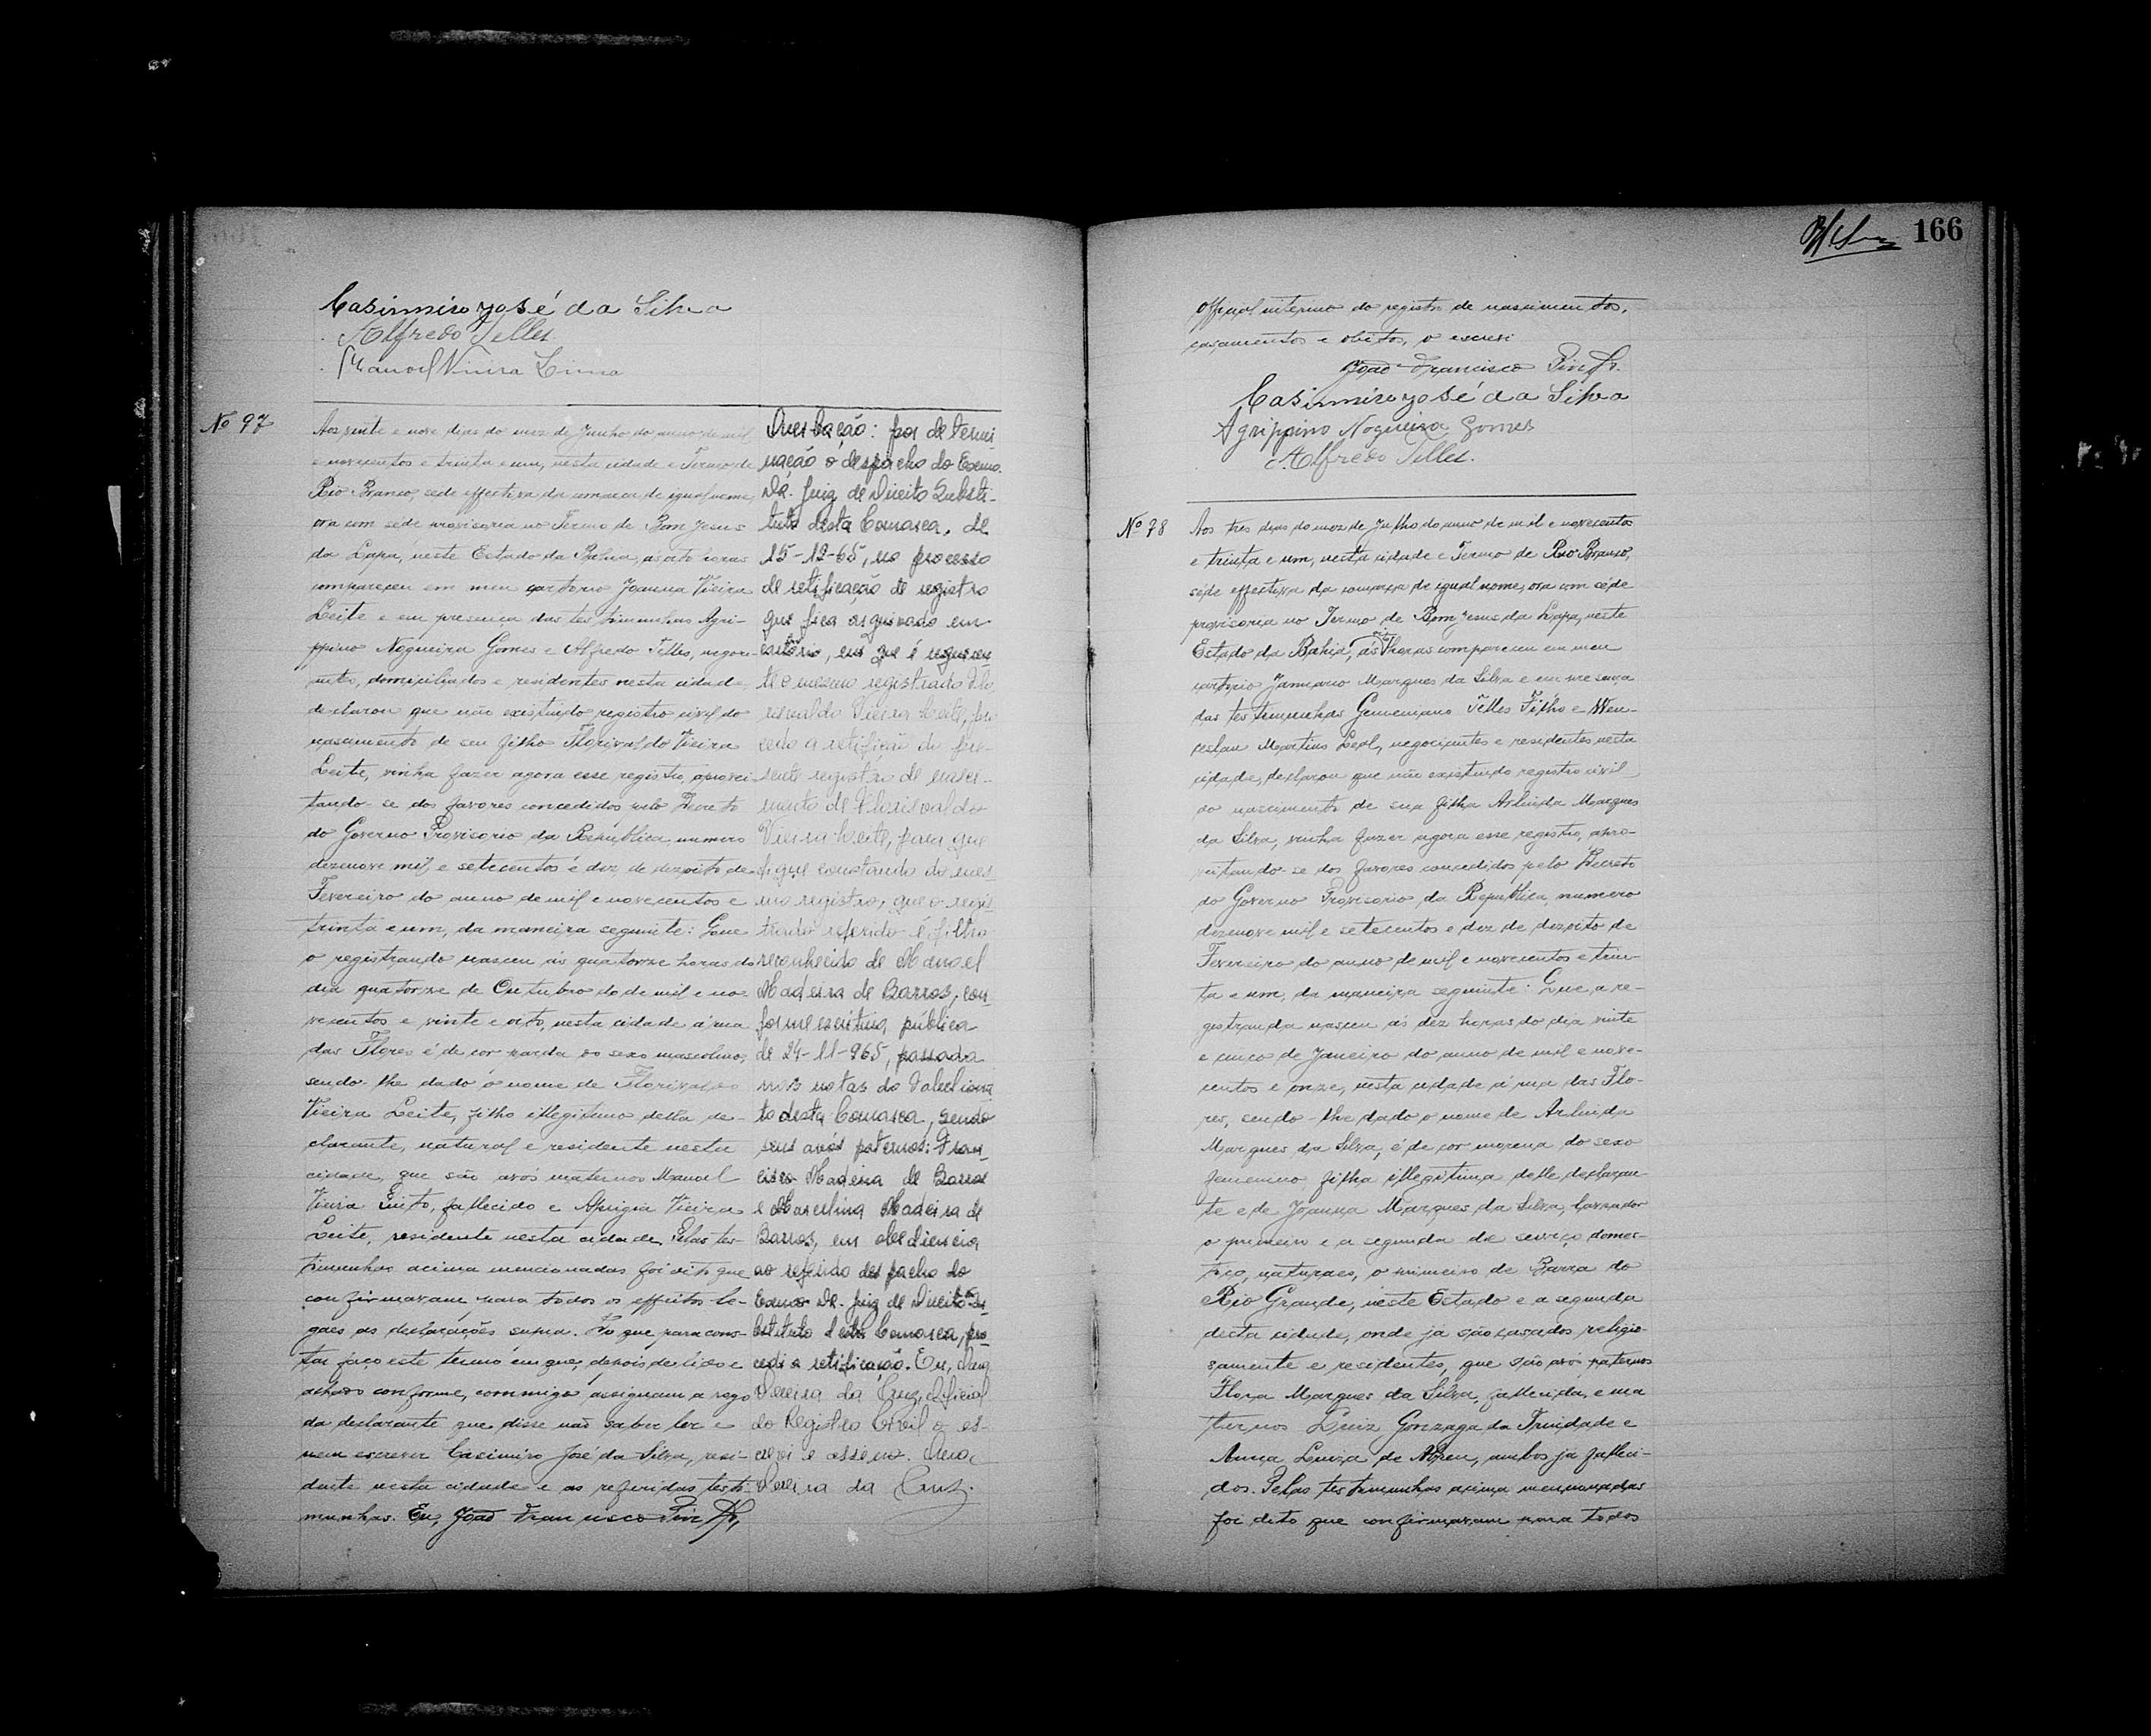 166
Casimiro José da Silva
Alfredo Telles
Manoel Vieira Lima
Nº 97
Aos vinte e nove dias do mez de Junho do anno de mil
e novecentos e trinta e um, nesta cidade e Termo de
Rio Branco, séde effectiva da comarca de igual nome,
ora com séde provisoria no Termo de Bom Jesus
da Lapa, neste Estado da Bahia, ás oito horas
compareceu em meu cartorio Joanna Vieira
Leite e em presença das testimunhas Agri-
ppino Nogueira Gomes e Alfredo Telles, negoci-
antes, domiciliados e residentes nesta cidade,
declarou que não existindo registro civil do
nascimento de seu filho Florivaldo Vieira
Leite, vinha fazer agora esse registro, aprovei-
tando-se dos favores concedidos pelo Decreto
do Governo Provisorio da Republica numero
dezenove mil e setecentos e dez de dezoito de
Fevereiro do anno de mil e novecentos e
trinta e um, da maneira seguinte: Que
o registrando nasceu ás quatorze horas do
dia quatorze de Outubro do de mil e no-
vecentos e vinte e oito, nesta cidade á rua
das Flores é de cor parda do sexo masculino,
sendo-lhe dado o nome de Florivaldo
Vieira Leite, filho illegitimo della de-
clarante, natural e residente nesta
cidade, que são avós maternos Manoel
Vieira, fallecido e Aprigia Vieira
Leite, residente nesta cidade. Pelas tes-
timunhas acima mencionadas foi dito que
confirmavam para todos os effeitos le-
gaes as declarações supra. Do que para cons-
tar faço este termo em que, depois de lido e
achado conforme, commigo assignam a rogo
da declarante que disse não saber ler e
nem escrever Casimiro José da Silva, resi-
dente nesta cidade e as referidas testi-
munhas. Eu, João Francisco
Averbação: por determi
nação e despacho do Exmo.
Dr. Juiz de Direito Substi-
tuto desta Comarca, de
15-12-65, no processo
de retificação de registro
que fica arquivado em
cartório, em que é requeren
te o mesmo registrado Flo
risvaldo Vieira Leite, pro
cedo a retifição do pre-
sente registro de nasci-
mento de Florisvaldo
Vieira Leite, para que
fique constando do mes
mo registro, que o regis
trado referido é filho
reconhecido de Manoel
Madeira de Barros, con
forme escritura pública
de 24-11-965, passada
nas notas do Tabeliona
to desta Comarca, sendo
seus avós paternos: Fran
cisco Madeira de Barros
e Marcelina Madeira de
Barros, em obediencia
ao referido despacho do
Exmo Dr. Juiz de Direito Su
bstituto desta Comarca, pro
cedi a retificação. Eu,
Pereira da Cruz, Oficial
do Registro Civil o es-
crevi e assino.
Pereira da Cruz.
Official interino do registro de nascimentos,
casamentos e obitos, o escrevi
João Francisco
Casimiro José da Silva
Agrippino Nogueira Gomes
Alfredo Telles.
Nº 78
Aos tres dias do mez de Julho do anno de mil e novecentos
e trinta e um, nesta cidade e Termo de Rio Branco,
séde effectiva da comarca de igual nome, ora com séde
provisoria no Termo de Bom Jesus da Lapa, neste
Estado da Bahia, ás oito horas compareceu em meu
cartorio Januario Marques da Silva e em presença
das testimunhas Telles Filho e Wen-
ceslau Martins Leal, negociantes e residentes nesta
cidade, declarou que não existindo registro civil
do nascimento de sua filha Arlinda Marques
da Silva, vinha fazer agora esse registro, apro-
veitando-se dos favores concedidos pelo Decreto
do Governo Provisorio da Republica, numero
dezenove mil e setecentos e dez de dezoito de
Fevereiro do anno de mil e novecentos e trin-
ta e um, da maneira seguinte: Que a re-
gistranda nasceu ás dez horas do dia vinte
e cinco de Janeiro do anno de mil e nove-
centos e onze, nesta cidade á rua das Flo-
res, sendo-lhe dado o nome de Arlinda
Marques da Silva, é de cor morena do sexo
femenino, filha illegitima delle declaran-
te e de Joanna Marques da Silva, lavrador
o primeiro e a segunda de serviço domes-
tico, naturaes, o primeiro de Barra do
Rio Grande, neste Estado e a segunda
desta cidade, onde já são casados religio-
samente e residentes, que são avó paternos
Flora Marques da Silva, fallecida, e ma
ternos Luiz Gonzaga da Trindade e
Anna Luiza de Abreu, ambos já falleci-
dos. Pelas testimunhas acima mencionadas
foi dito que confirmavam para todos